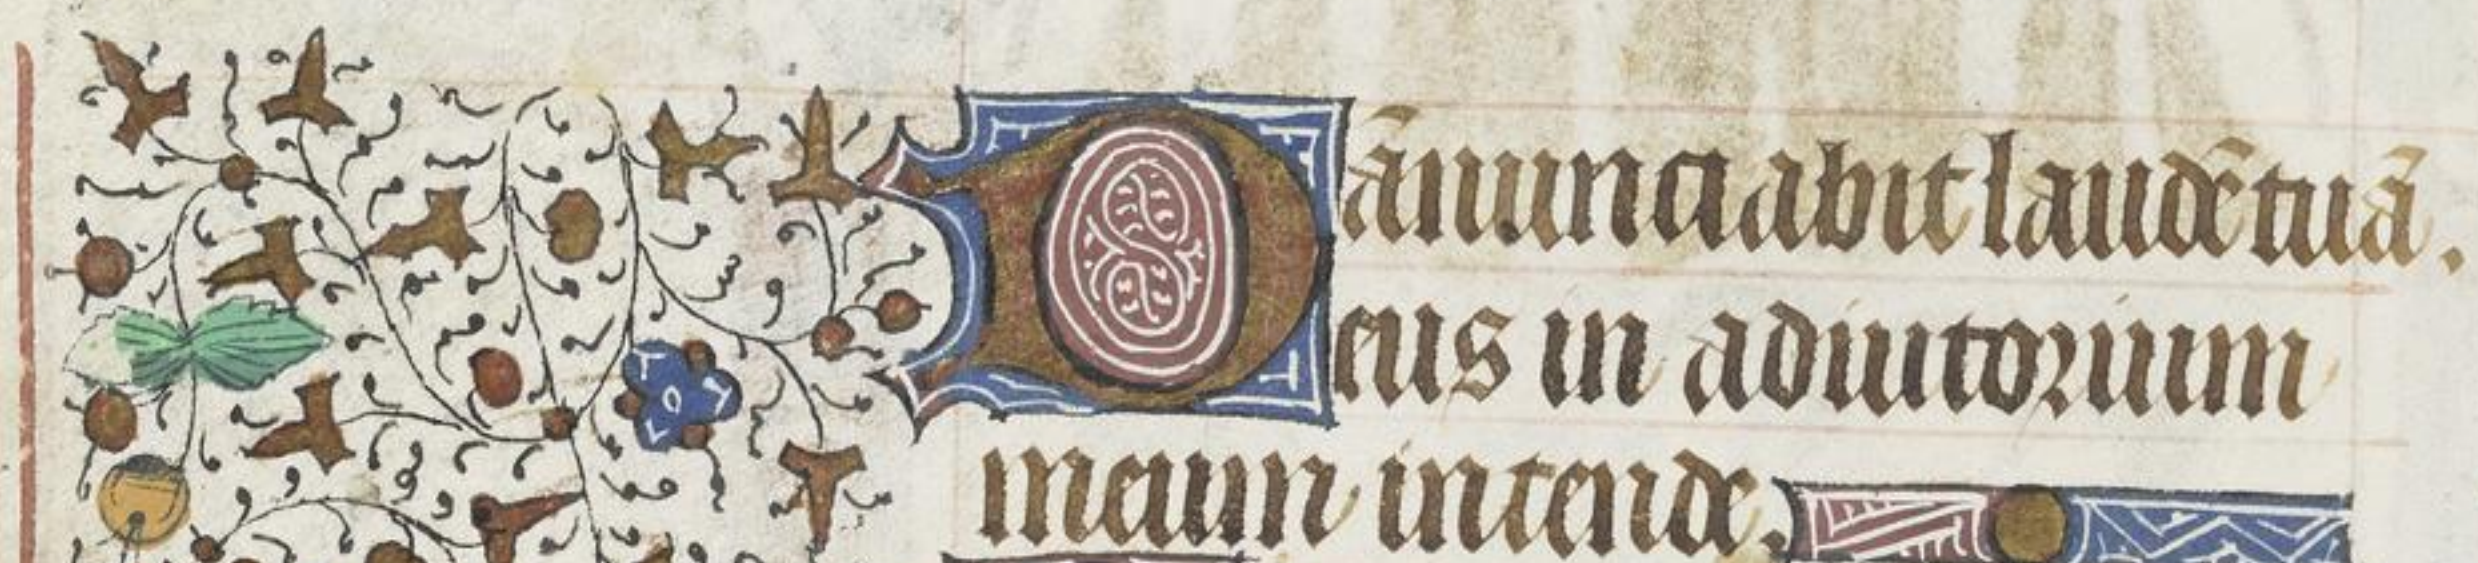 ānunciabit laudē tuā.
Deus in adiutorium
meum intende.